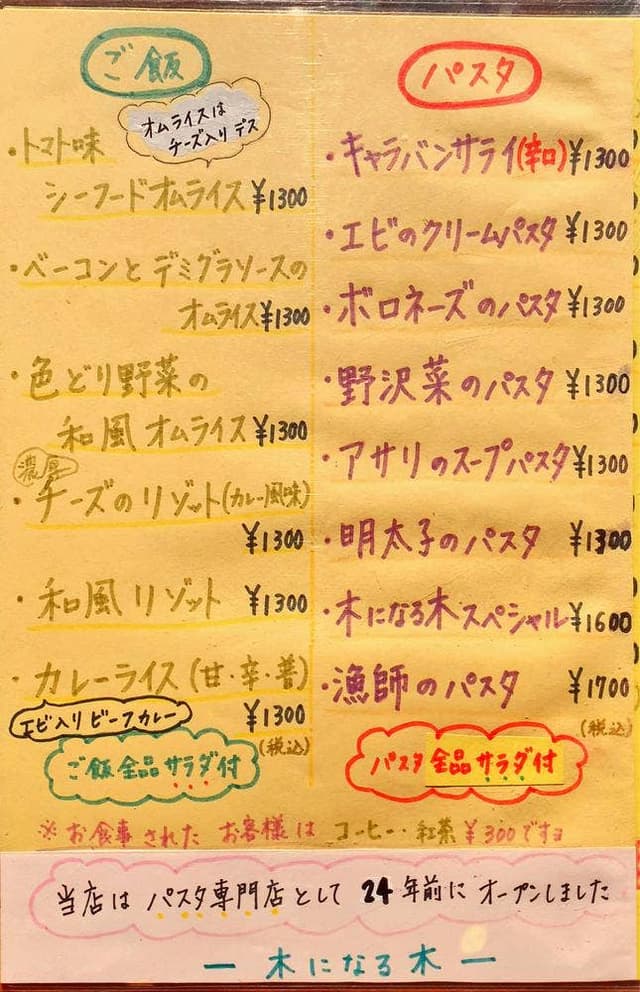 ご飯
オムライスは
チーズ入りデス
・トマト味
シーフードオムライス ¥1300
・ベーコンとデミグラソースの
オムライス ¥1300
・色どり野菜の
和風オムライス ¥1300
濃厚
・チーズのリゾット(カレー風味)
¥1300
・和風リゾット ¥1300
・カレーライス(甘・辛・普)
エビ入りビーフカレー
¥1300
(税込)
ご飯全品サラダ付
パスタ
・キャラバンサライ(辛口) ¥1300
・エビのクリームパスタ ¥1300
・ボロネーズのパスタ ¥1300
・野沢菜のパスタ ¥1300
・アサリのスープパスタ ¥1300
・明太子のパスタ ¥1300
・木になる木スペシャル ¥1600
・漁師のパスタ ¥1700
(税込)
パスタ全品サラダ付
※お食事されたお客様はコーヒー・紅茶¥300ですヨ
当店はパスタ専門店として24年前にオープンしました
ー木になる木ー